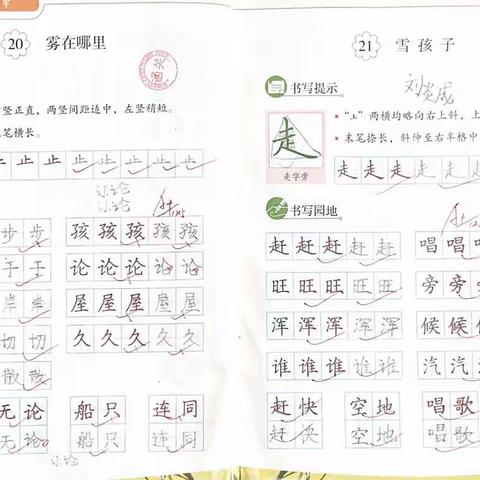 20 雾在哪里
竖正直，两竖间距适中，左竖稍短。
笔横长。
止 止 止 止 止 止 止
论
论
步 步
孩 孩 孩 孩 孩
于 于
论 论 论 论 论
岸 岸
屋 屋 屋 屋 屋
切 切
久 久 久 久 久
散 散
无 论 船 只 连 同
无 论 船 只 连 同
论
21 雪孩子
书写提示。
走
走字旁
两横均略向右上斜，上
末笔捺长，斜伸至右半格中
走 走 走 走 走 走
书写园地。
赶 赶 赶 赶 赶 唱 唱 唱
旺 旺 旺 旺 旺 旁 旁 旁
浑 浑 浑 浑 浑 候 候 候
谁 谁 谁 谁 谁 汽 汽 汽
赶 快 空 地 唱 歌
赶 快 空 地 唱 歌